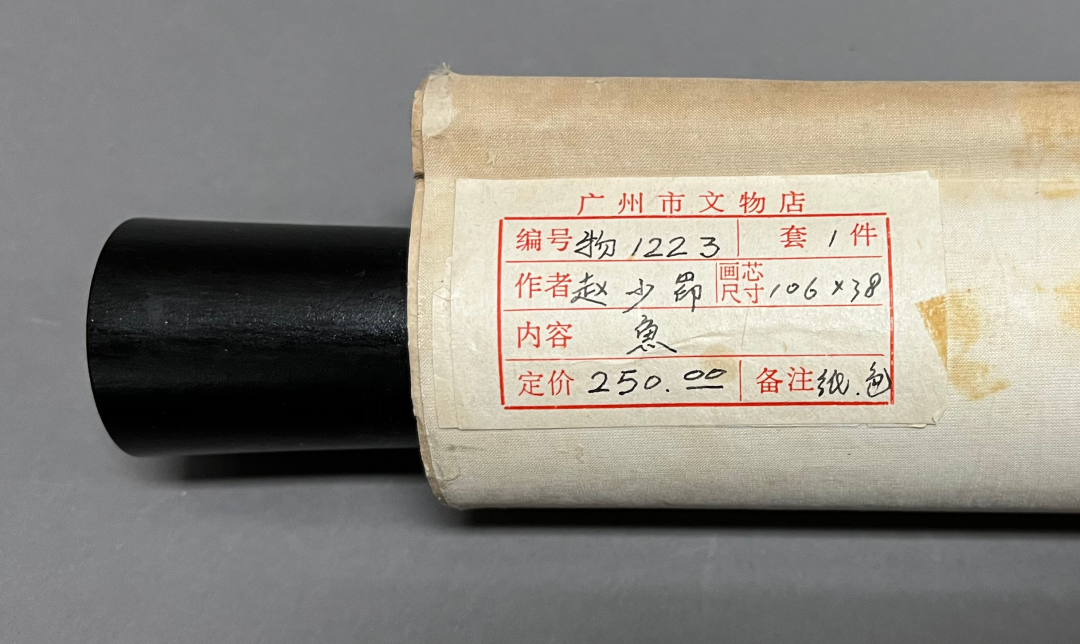 广州市文物店
编号 物1223 套 1 件
作者 赵少昂 画芯尺寸 106×38
内容 魚
定价 250.00 备注 纸.色